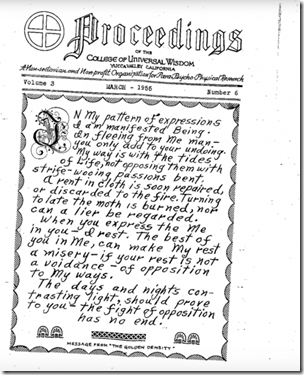 Proceedings
OF THE
COLLEGE OF UNIVERSAL WISDOM
YUCCA VALLEY CALIFORNIA
A Non-sectarian and Nonprofit Organization for Para Psycho-Physical Research
Volume 3 MARCH - 1956 Number 6
IN My pattern of expressions
I am manifested Being.
In fleeing from Me man-
you only add to your undoing.
My way is with the tides
of Life, not opposing them with
strife-wooing passions bent.
A rent in cloth is soon repaired,
or discarded to the fire. Turning
to late the moth is burned, nor
can a lier be regarded.
When you express the Me
in you-I rest. The best of
you in Me, can make My rest
a misery-if your rest is not
a voidance-of opposition
to My ways.
The days and nights con-
trasting light, should prove
to you-the fight of opposition
has no end.
MESSAGE FROM "THE GOLDEN DENSITY"